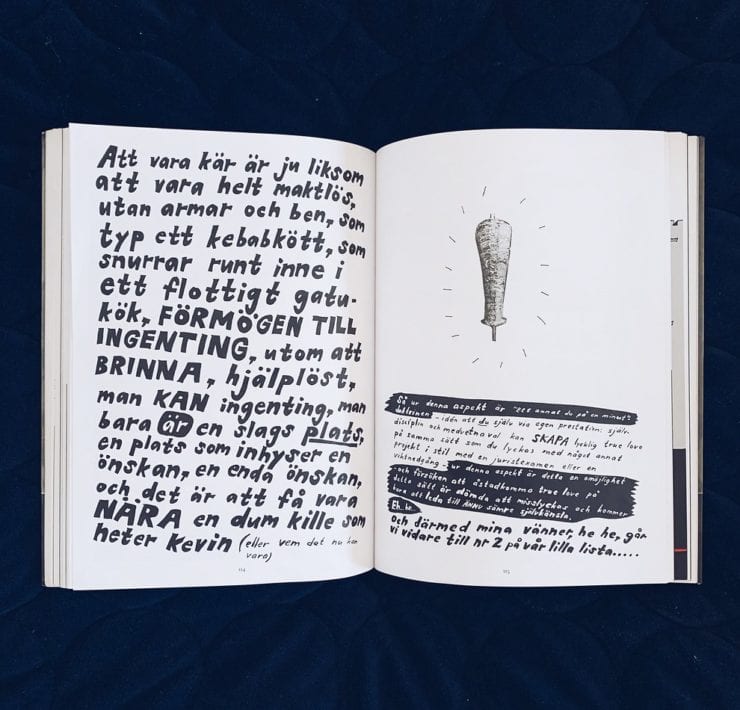 Att vara kär är ju liksom
att vara helt maktlös,
utan armar och ben, som
typ ett kebabkött, som
snurrar runt inne i
ett flottigt gatu-
kök, FÖRMÖGEN TILL
INGENTING, utom att
BRINNA, hjälplöst,
man KAN ingenting, man
bara är en slags plats,
en plats som inhyser en
önskan, en enda önskan,
och det är att få vara
NÄRA en dum kille som
heter Kevin (eller vem det nu kan
vara)
114
Så ur denna aspekt är "ett annat du på en minut"
doktrinen - idén att du själv via egen prestation: själv-
disciplin och medvetna val kan SKAPA lycklig true love
på samma sätt som du lyckas med något annat
projekt i stil med en juristexamen eller en
viktnedgång - ur denna aspekt är detta en omöjlighet
och försöken att åstadkomma true love på
detta sätt är dömda att misslyckas och kommer
bara att leda till ÄNNU sämre självkänsla.
Eh..he..
Och därmed mina vänner, he he, går
vi vidare till nr 2 på vår lilla lista.....
115